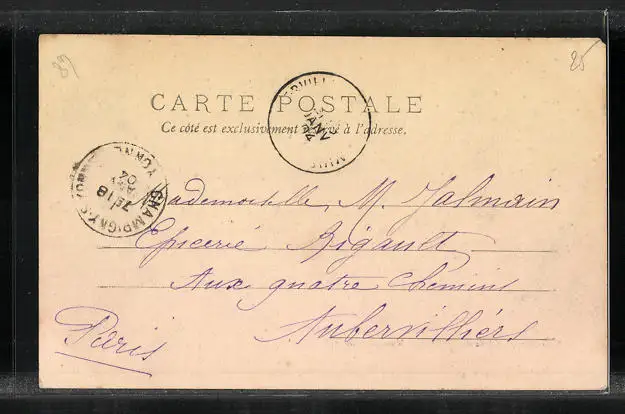 89
85
CARTE POSTALE
Ce côté est exclusivement réservé à l'adresse.
JANV
04
CHAMPIGNY-S-YONNE
18
JANV
04
Mademoiselle M. Jalmain
Epicerie Rigault
Aux quatre Chemins
Aubervilliérs
Paris